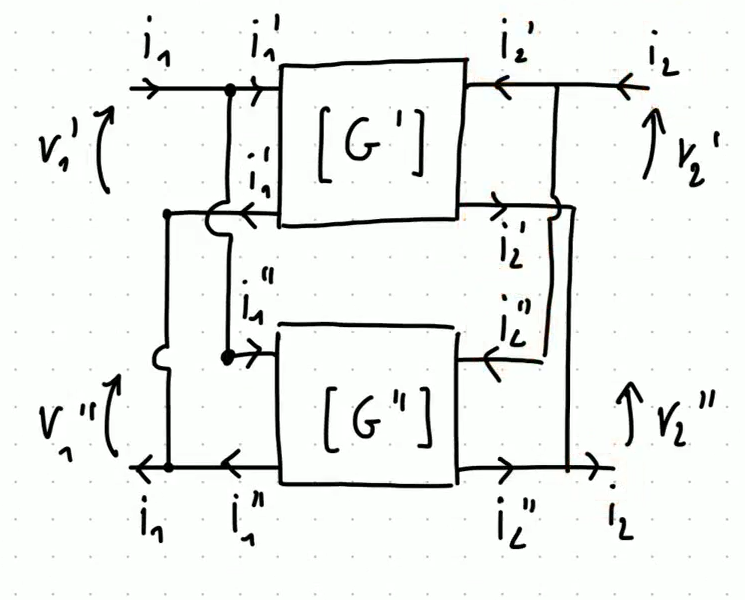 i₁ i₁' i₂' i₂
v₁' [G'] v₂'
i₁' i₂'
i₁" i₂"
v₁" [G"] v₂"
i₁ i₁" i₂" i₂